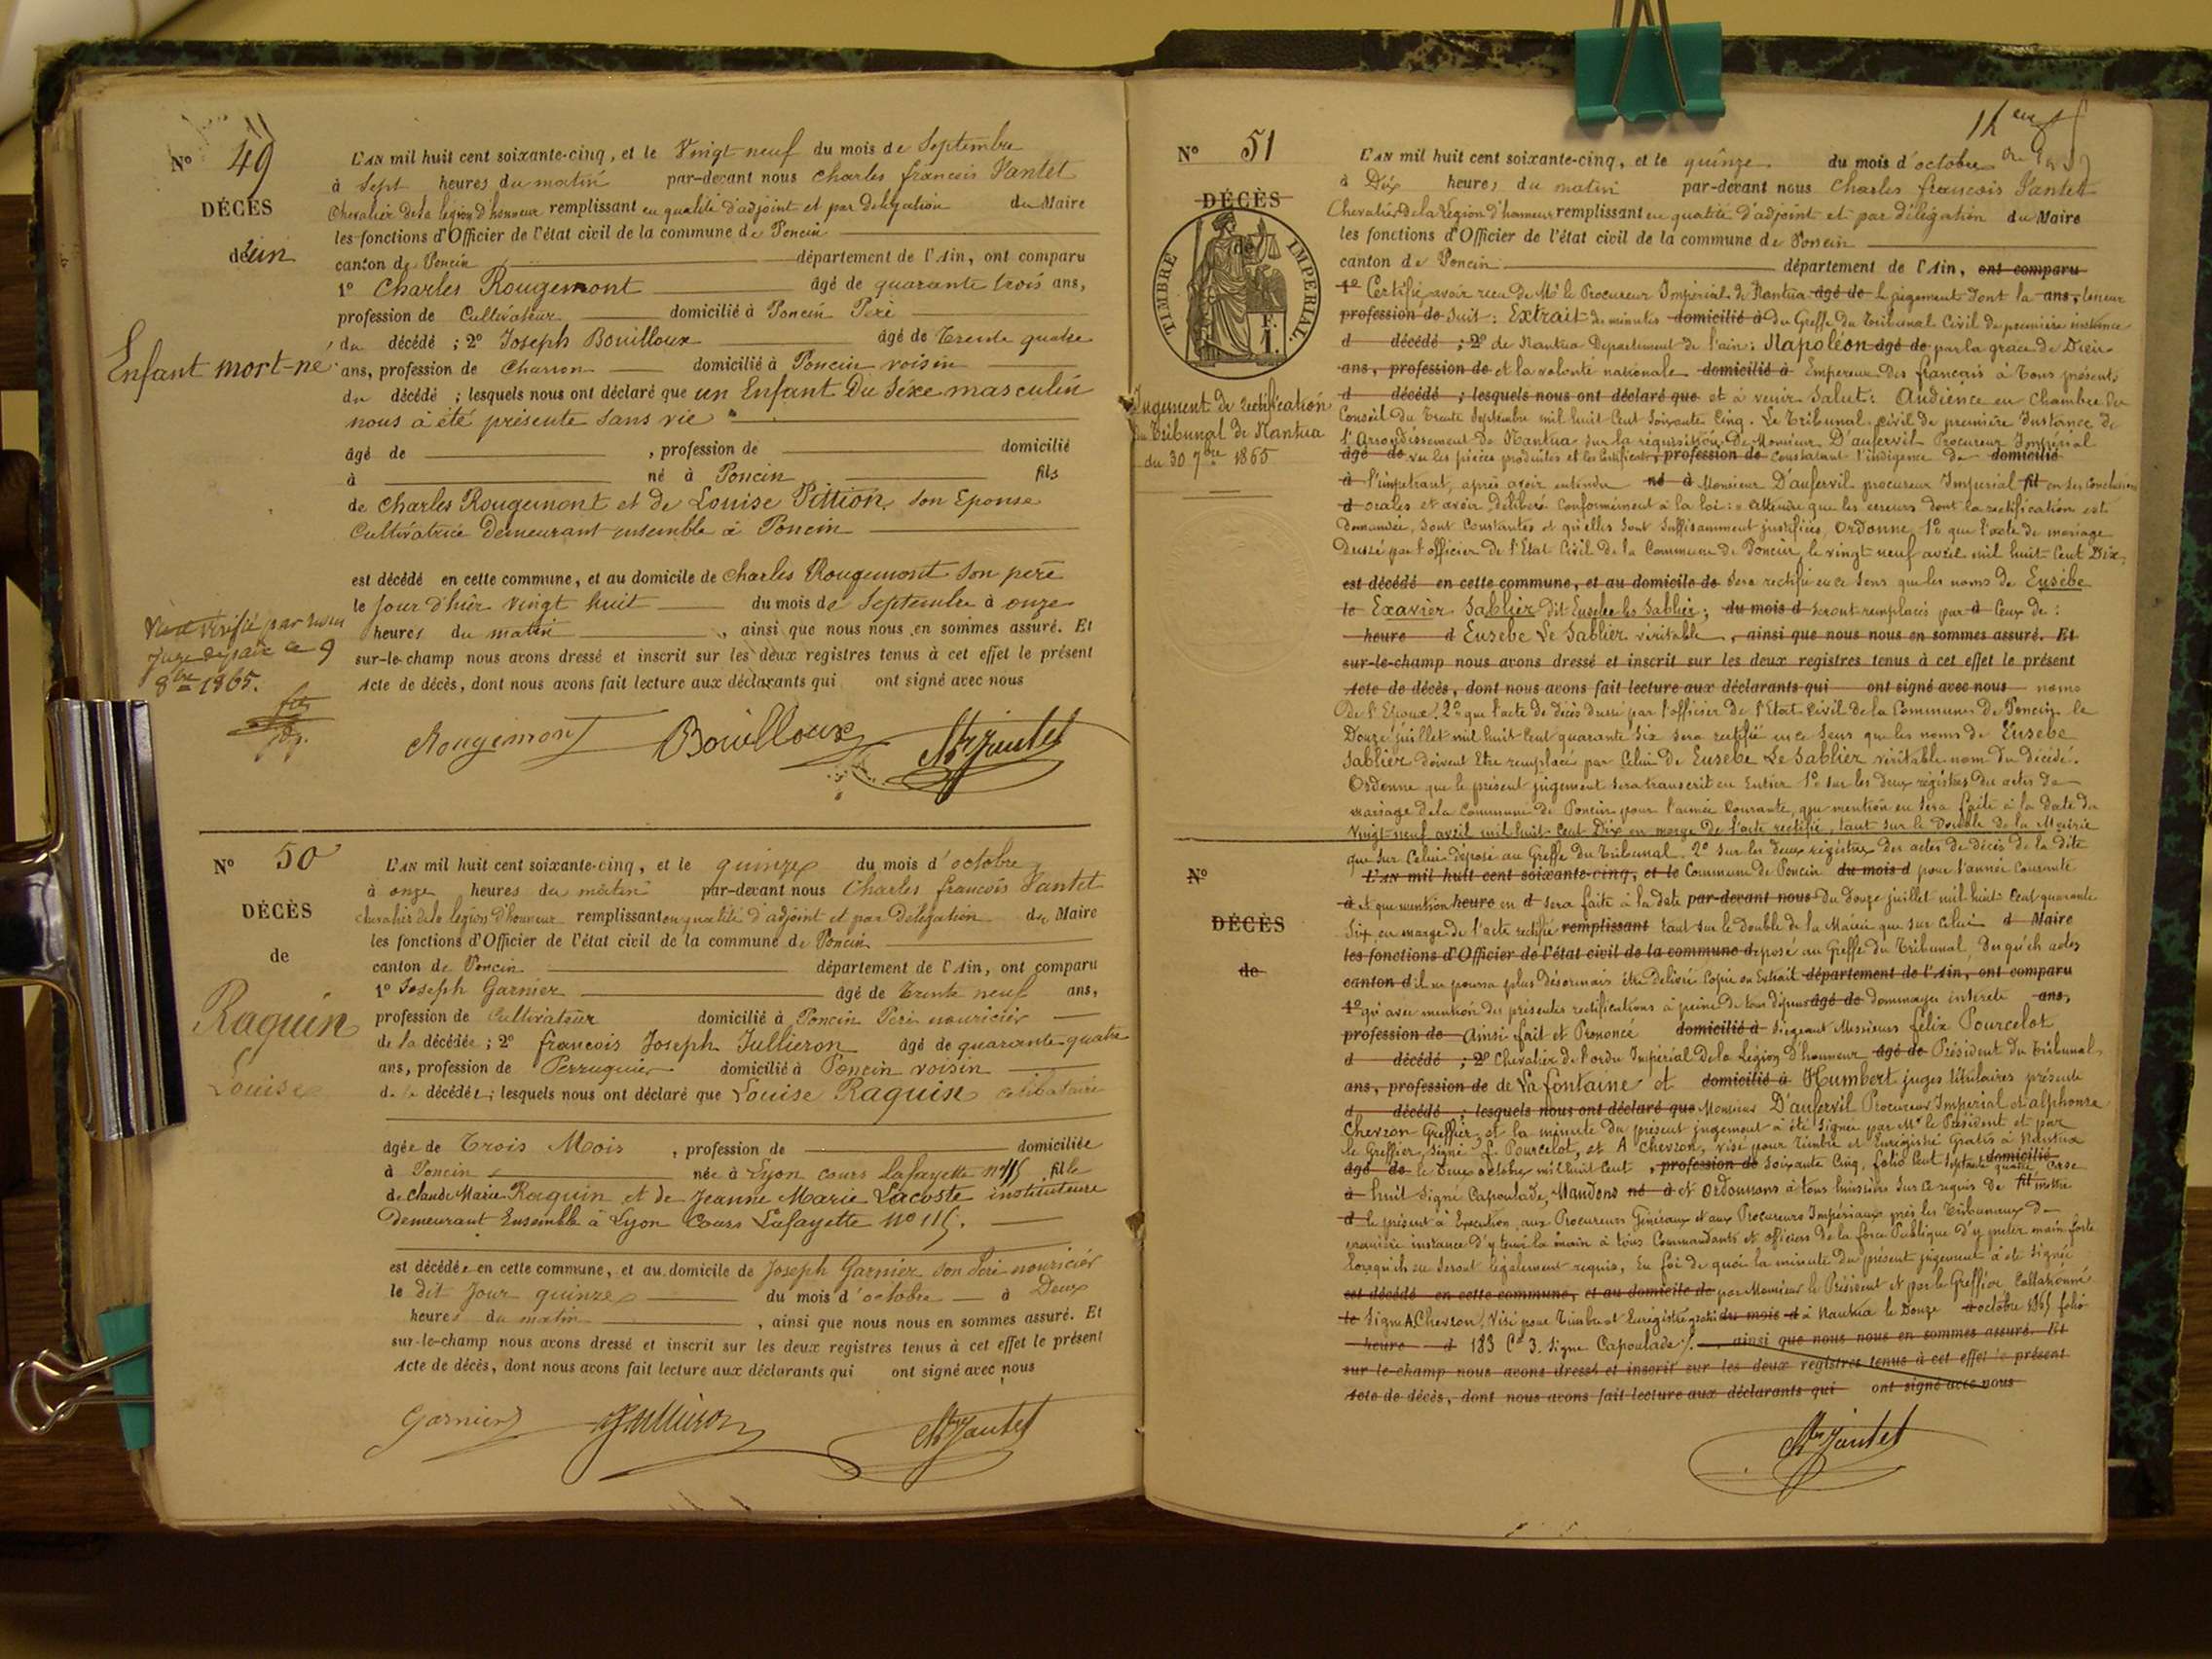 N° 49
DÉCÈS
d'un
Enfant mort-né
L'AN mil huit cent soixante-cinq, et le Vingt neuf du mois de Septembre
à Sept heures du matin par-devant nous Charles francois Jantet
Chevalier de la légion d'honneur remplissant en qualité d'adjoint et par délégation du Maire
les fonctions d'Officier de l'état civil de la commune de Poncin
canton de Poncin département de l'Ain, ont comparu
1° Charles Rougemont âgé de quarante trois ans,
profession de Cultivateur domicilié à Poncin Père
du décédé ; 2° Joseph Bouilloux âgé de trente quatre
ans, profession de Charron domicilié à Poncin voisin
du décédé ; lesquels nous ont déclaré que un Enfant Du Sexe masculin
nous à été présenté sans vie
âgé de , profession de domicilié
à né à Poncin fils
de Charles Rougemont et de Louise Pittion, son Epouse
Cultivatrice Demeurant ensemble à Poncin
est décédé en cette commune, et au domicile de Charles Rougemont son père
le Jour d'hier vingt huit du mois de Septembre à onze
heures du matin , ainsi que nous nous en sommes assuré. Et
sur-le-champ nous avons dressé et inscrit sur les deux registres tenus à cet effet le présent
Acte de décès, dont nous avons fait lecture aux déclarants qui ont signé avec nous
vérifié par
Juge de paix ce 9
8bre 1865.
Rougemont Bouilloux Ch Jantet
N° 50
DÉCÈS
de
Raquin
Louise
L'AN mil huit cent soixante-cinq, et le quinze du mois d'octobre
à onze heures du matin par-devant nous Charles francois Jantet
chevalier de la légion d'honneur remplissant en qualité d'adjoint et par délégation du Maire
les fonctions d'Officier de l'état civil de la commune de Poncin
canton de Poncin département de l'Ain, ont comparu
1° Joseph Garnier âgé de trente neuf ans,
profession de Cultivateur domicilié à Poncin Père nouricier
de la décédée ; 2° francois Joseph Jullieron âgé de quarante quatre
ans, profession de Perruquier domicilié à Poncin voisin
de la décédée ; lesquels nous ont déclaré que Louise Raquin célibataire
âgée de Trois Mois , profession de domiciliée
à Poncin née à Lyon cours Lafayette N° 115 fille
de Claude Marie Raquin et de Jeanne Marie Lacoste instituteurs
Demeurant Ensemble à Lyon Cours Lafayette N° 115.
est décédée en cette commune, et au domicile de Joseph Garnier son Père nouricier
le dit Jour quinze du mois d'octobre à Deux
heures du matin , ainsi que nous nous en sommes assuré. Et
sur-le-champ nous avons dressé et inscrit sur les deux registres tenus à cet effet le présent
Acte de décès, dont nous avons fait lecture aux déclarants qui ont signé avec nous
Garnier Jullieron Ch Jantet
N° 51
DÉCÈS
de
TIMBRE IMPÉRIAL.
Jugement de rectification
du Tribunal de Nantua
du 30 7bre 1865
L'AN mil huit cent soixante-cinq, et le quinze du mois d'octobre
à Dix heures du matin par-devant nous Charles francois Jantet
Chevalier de la légion d'honneur remplissant en qualité d'adjoint et par délégation du Maire
les fonctions d'Officier de l'état civil de la commune de Poncin
canton de Poncin département de l'Ain, ont comparu
1° Certifie avoir recu de Mr le Procureur Impérial de Nantua âgé de le jugement dont la ans, teneur
profession de suit : Extrait des minutes domicilié à du Greffe du Tribunal Civil de première instance
d décédé ; 2° de Nantua Departement de l'ain : Napoléon âgé de par la grace de Dieu
ans, profession de et la volonté nationale domicilié à Empereur des français à tous présents
d décédé ; lesquels nous ont déclaré que et à venir Salut : Audience en Chambre du
Conseil du trente Septembre mil huit Cent Soixante Cinq. Le Tribunal civil de première Instance de
l'Arrondissement de Nantua sur la réquisition de Monsieur D'aufervil Procureur Impérial
âgé de vu les pièces produites et les certificats, profession de constatant l'indigence de domicilié
à l'impétrant, après avoir entendu né à Monsieur D'aufervil procureur Impérial fil en ses Conclusions
d orales et avoir délibéré Conformément à la loi : Attendu que les erreurs dont la rectification est
Demandée, sont Constantes et qu'elles sont suffisamment justifiées, Ordonne, 1° que l'acte de mariage
Dressé par l'officier de l'Etat Civil de la Commune de Poncin, le vingt neuf avril mil huit Cent Dix,
est décédé en cette commune, et au domicile de sera rectifié en ce sens que les noms de Eusèbe
le Exavier Sablier dit Eusebe les Sablier ; du mois d seront remplacés par à Ceux de :
heure d Eusebe Le Sablier véritable , ainsi que nous nous en sommes assuré. Et
sur-le-champ nous avons dressé et inscrit sur les deux registres tenus à cet effet le présent
Acte de décès, dont nous avons fait lecture aux déclarants qui ont signé avec nous noms
De l'Epoux. 2° que l'acte de décès dressé par l'officier de l'Etat Civil de la Commune de Poncin le
Douze juillet mil huit Cent quarante Six sera rectifié en ce sens que les noms de Eusebe
Sablier doivent Etre remplacé par Celui de Eusebe Le Sablier véritable nom du décédé.
Ordonne que le présent jugement sera transcrit en Entier 1° sur les deux régistres des actes de
mariage de la Commune de Poncin pour l'année Courante, que mention en sera faite à la date du
Vingt-neuf avril mil huit Cent Dix en marge de l'acte rectifié, tant sur le Double de la Mairie
que sur Celui déposé au Greffe du Tribunal. 2° sur les deux régistres des actes de décès de la dite
N°
DÉCÈS
de
L'AN mil huit cent soixante-cinq, et le Commune de Poncin du mois d pour l'année Courante
à et que mention heure en d sera faite à la date par-devant nous du douze juillet mil huit Cent quarante
Six en marge de l'acte rectifié remplissant tant sur le Double de la Mairie que sur Celui d Maire
les fonctions d'Officier de l'état civil de la commune déposé au Greffe du Tribunal, Desquels actes
canton d il ne pourra plus désormais être délivré Copie ou Extrait département de l'Ain, ont comparu
1° qu'avec mention des presentes rectifications à peine de tous dépens âgé de dommages intérêts ans,
profession de Ainsi fait et Prononcé domicilié à Siégeant Messieurs félix Pourcelot
d décédé ; 2° Chevalier de l'ordre Impérial De la Légion D'honneur âgé de Président du Tribunal,
ans, profession de de La fontaine et domicilié à Humbert juges titulaires présents
d décédé ; lesquels nous ont déclaré que Monsieur D'aufervil Procureur Impérial et alphonse
Chevron Greffier, et la minute du présent jugement a été Signée par Mr le Président et par
le Greffier, Signé f. Pourcelot, et A Chevron, visé pour Timbre et Enregistré Gratis à Nantua
âgé de le Deux octobre mil huit Cent , profession de Soixante Cinq, folio Cent Septante quatre domicilié Case
à huit Signé Capoulade, Mandons né à et Ordonnons à tous huissiers sur ce requis de fil mettre
d le présent à Exécution, aux Procureurs Généraux et aux Procureurs Impériaux près les Tribunaux de
première instance d'y tenir la main à tous Commandants et officiers de la force Publique d'y prêter main forte
lorsqu'ils en seront légalement requis, En foi de quoi la minute du présent jugement à été signée
est décédé en cette commune, et au domicile de par Monsieur le Président et par le Greffier Collationné
le Signé A Chevron, Visé pour Timbre et Enregistré gratis du mois d à Nantua le Douze à octobre 1865 folio
heure d 183 Ce 3. Signé Capoulade ainsi que nous nous en sommes assuré. Et
sur-le-champ nous avons dressé et inscrit sur les deux registres tenus à cet effet le présent
Acte de décès, dont nous avons fait lecture aux déclarants qui ont signé avec nous
Ch Jantet